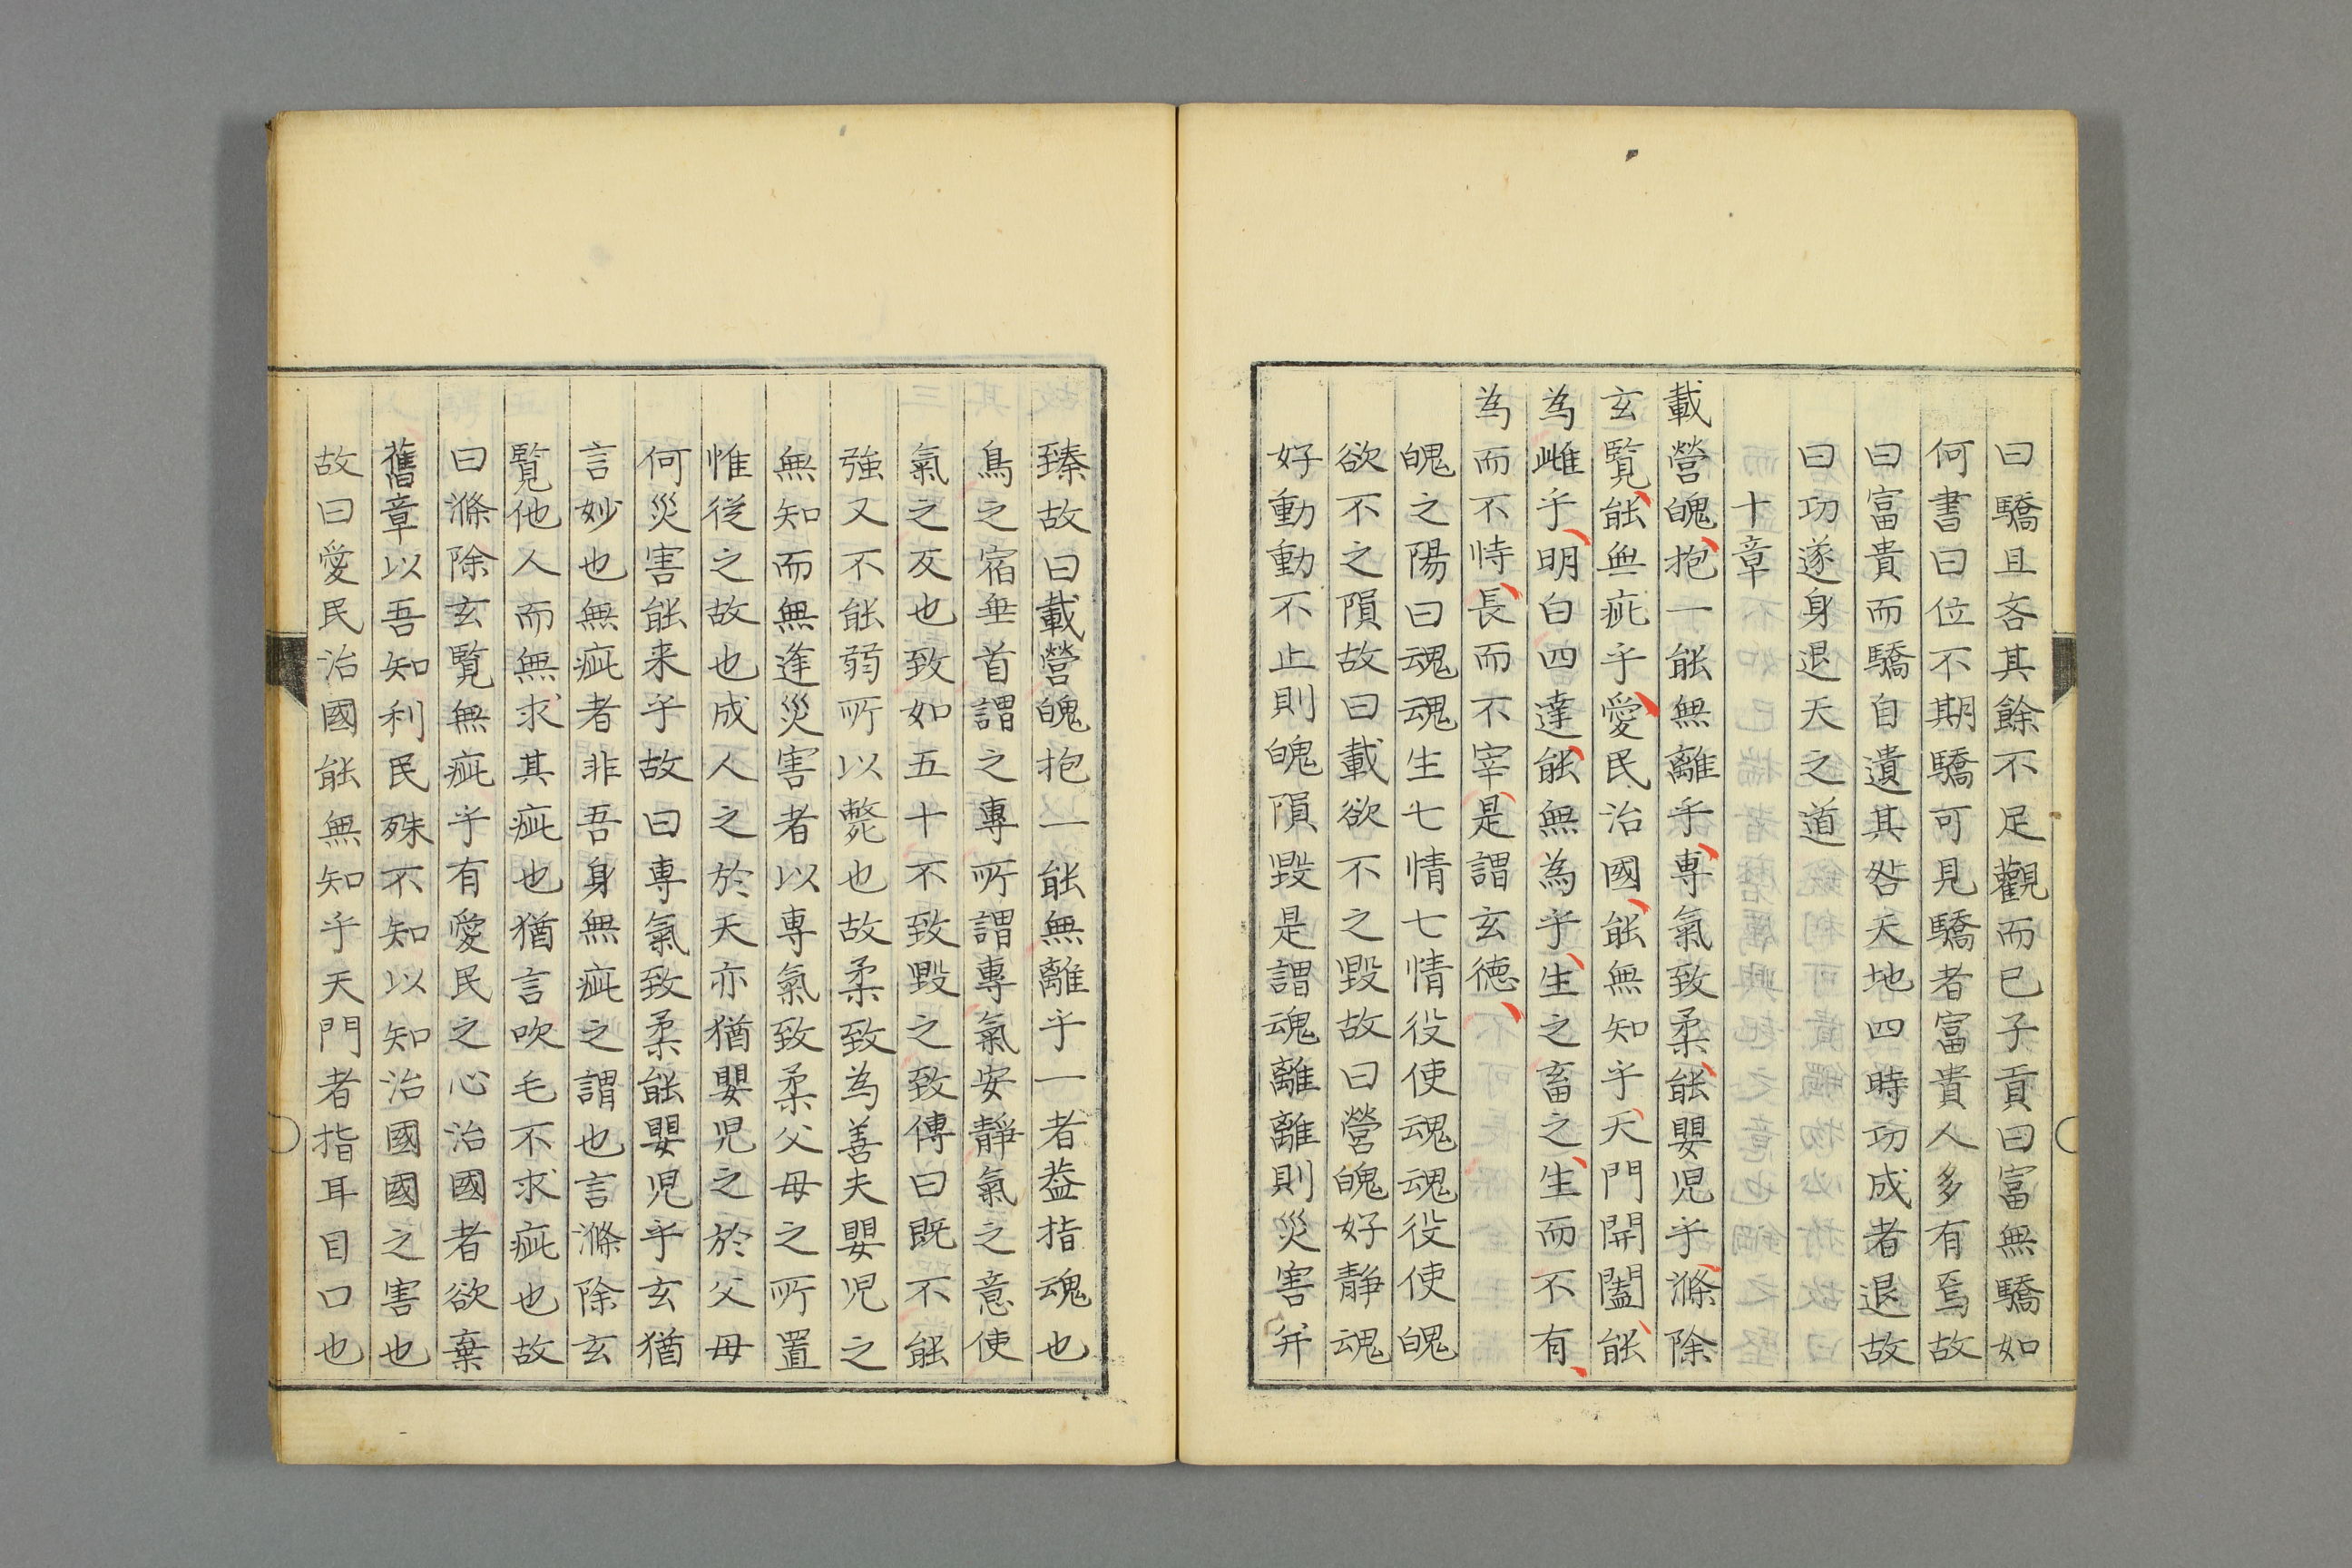 曰驕且吝其餘不足觀而已子貢曰富無驕如
何書曰位不期驕可見驕者富貴人多有焉故
曰富貴而驕自遺其咎天地四時功成者退故
曰功遂身退天之道
十章
載營魄抱一能無離乎專氣致柔能嬰児乎滌除
玄覧能無疵乎愛民治國能無知乎天門開闔能
為雌乎明白四達能無為乎生之畜之生而不有
為而不恃長而不宰是謂玄德
魄之陽曰魂魂生七情七情役使魂魂役使魄
欲不之隕故曰載欲不之毀故曰營魄好静魂
好動動不止則魄隕毀是謂魂離離則災害并
臻故曰載營魄抱一能無離乎一者益指魂也
鳥之宿垂首謂之專所謂專氣安靜氣之意使
氣之反也致如五十不致毀之致傳曰既不能
強又不能弱所以斃也故柔致為善夫嬰児之
無知而無逢災害者以專氣致柔父母之所置
惟從之故也成人之於天亦猶嬰児之於父母
何災害能来乎故曰專氣致柔能嬰児乎玄猶
言妙也無疵者非吾身無疵之謂也言滌除玄
覧他人而無求其疵也猶言吹毛不求疵也故
曰滌除玄覧無疵乎有愛民之心治國者欲棄
舊章以吾知利民殊不知以知治國國之害也
故曰愛民治國能無知乎天門者指耳目口也